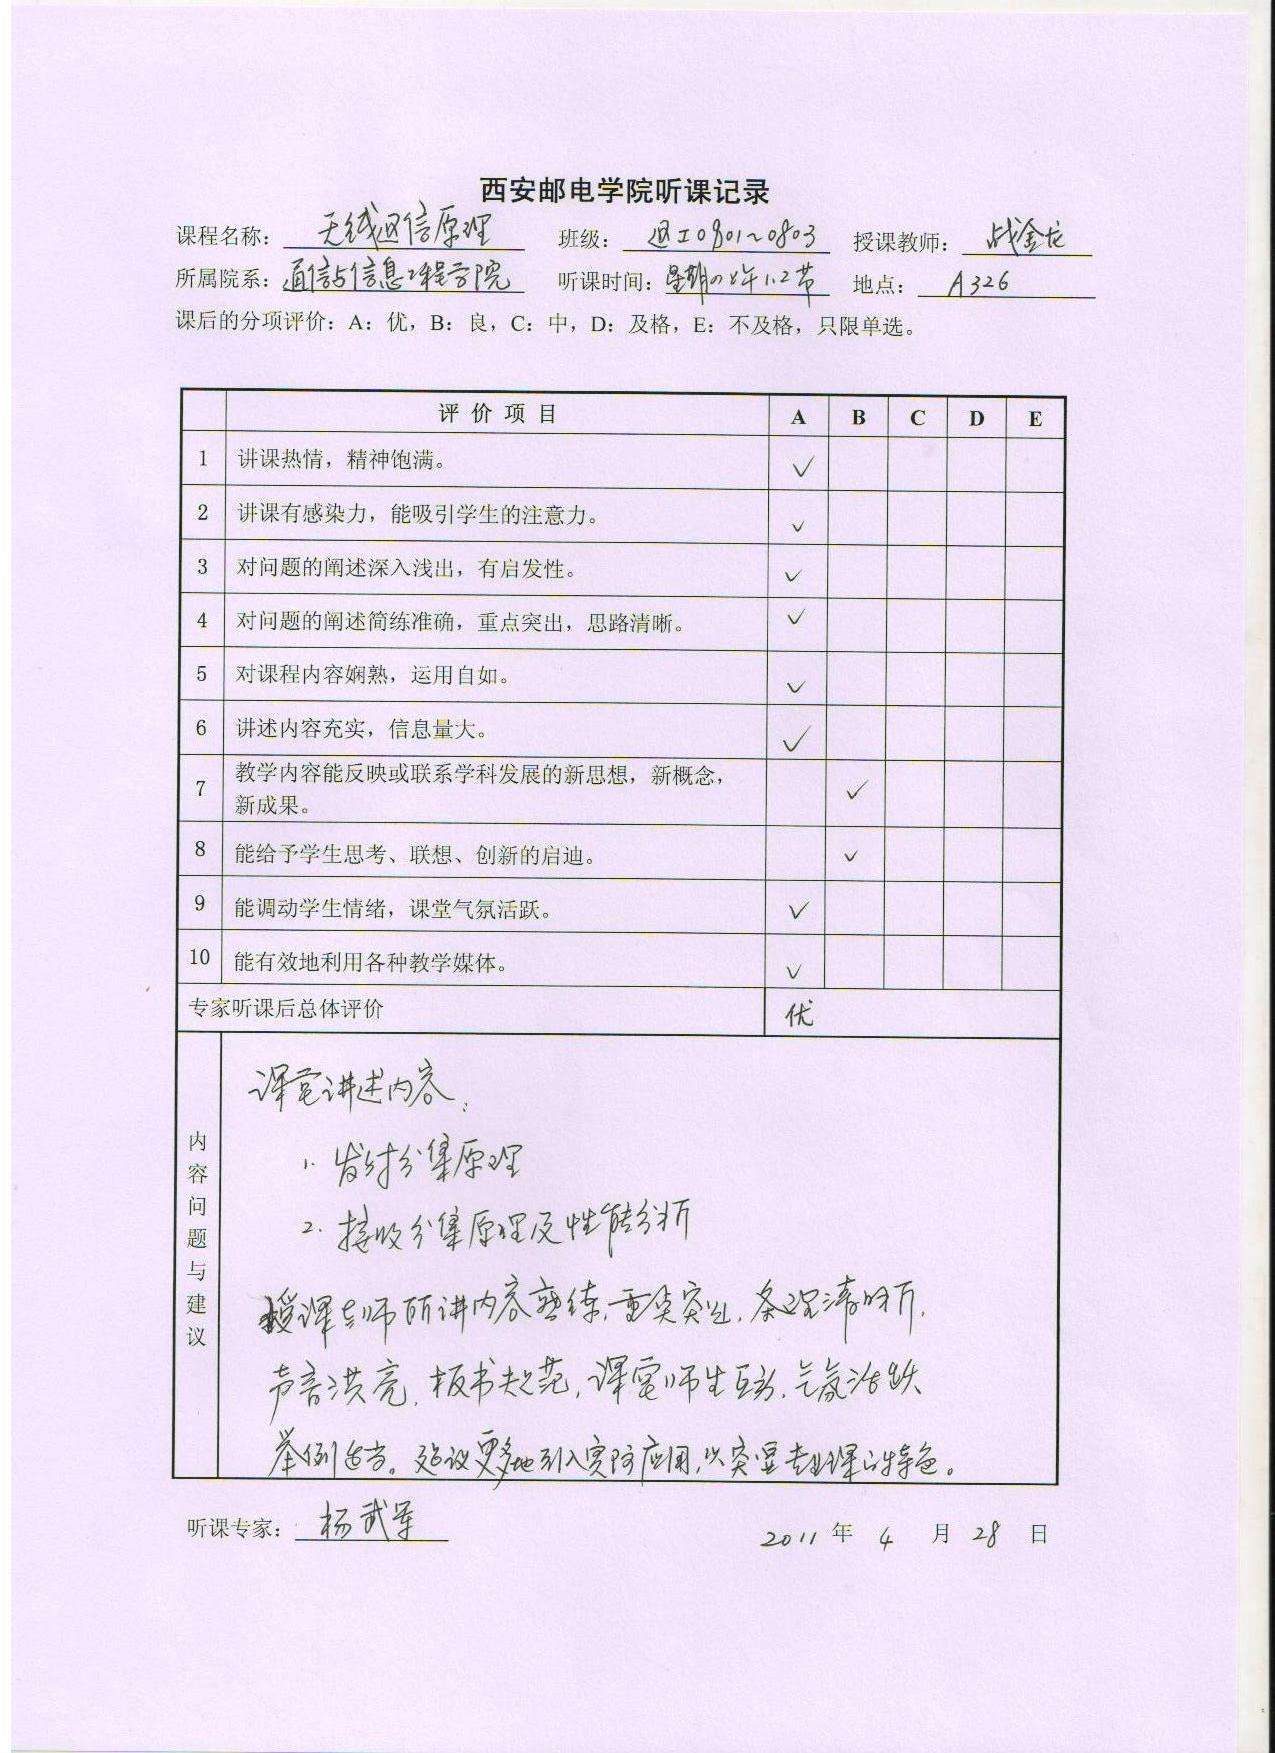 西安邮电学院听课记录
课程名称： 无线通信原理 班级： 通工0801~0803 授课教师： 战金龙
所属院系： 通信与信息工程学院 听课时间： 星期四上午1.2节 地点： A326
课后的分项评价：A：优，B：良，C：中，D：及格，E：不及格，只限单选。
评价项目 A B C D E
1 讲课热情，精神饱满。 ✓
2 讲课有感染力，能吸引学生的注意力。 ✓
3 对问题的阐述深入浅出，有启发性。 ✓
4 对问题的阐述简练准确，重点突出，思路清晰。 ✓
5 对课程内容娴熟，运用自如。 ✓
6 讲述内容充实，信息量大。 ✓
7 教学内容能反映或联系学科发展的新思想，新概念，
新成果。 ✓
8 能给予学生思考、联想、创新的启迪。 ✓
9 能调动学生情绪，课堂气氛活跃。 ✓
10 能有效地利用各种教学媒体。 ✓
专家听课后总体评价 优
内容问题与建议
课堂讲述内容：
1. 发射分集原理
2. 接收分集原理及性能分析
授课老师所讲内容熟练，重点突出，条理清晰，
声音洪亮，板书规范，课堂师生互动，气氛活跃
举例适当。建议更多地引入实际应用，以突显专业课的特色。
听课专家： 杨武军 2011 年 4 月 28 日